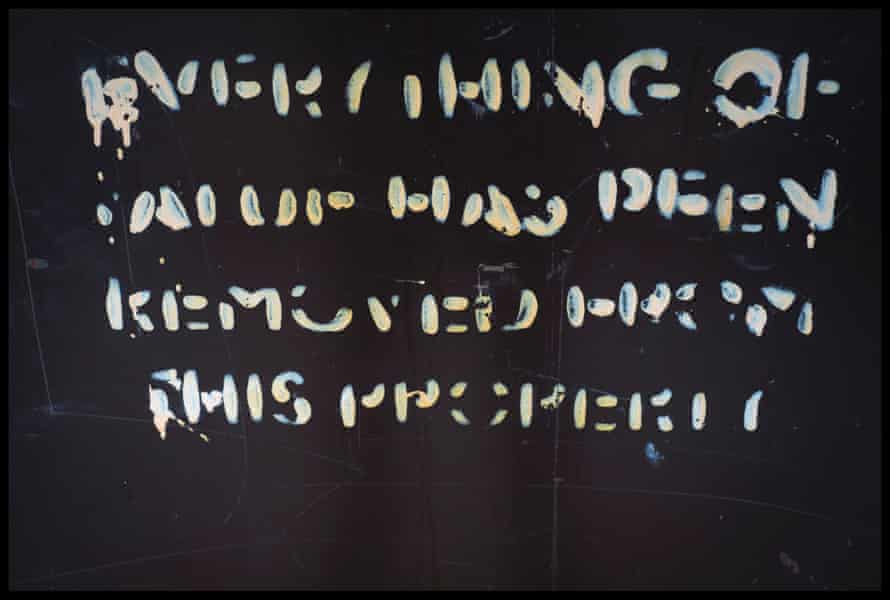 EVERYTHING OF
VALUE HAS BEEN
REMOVED FROM
THIS PROPERTY